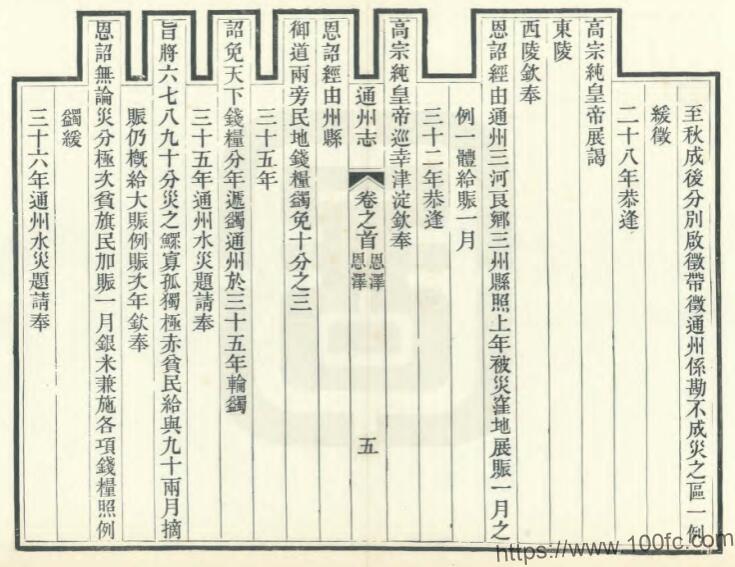 至秋成後分別啟徵帶徵通州係勘不成災之區一例
緩徵
二十八年恭逢
高宗純皇帝展謁
東陵
西陵欽奉
恩詔經由通州三河良鄉三州縣照上年被災窪地展賑一月之
例一體給賑一月
三十二年恭逢
高宗純皇帝巡幸津淀欽奉
通州志 卷之首 恩澤 恩澤 五
恩詔經由州縣
御道兩旁民地錢糧蠲免十分之三
三十五年
詔免天下錢糧分年遞蠲通州於三十五年輪蠲
三十五年通州水災題請奉
旨將六七八九十分災之鰥寡孤獨極赤貧民給與九十兩月摘
賑仍概給大賑例賑次年欽奉
恩詔無論災分極次貧旗民加賑一月銀米兼施各項錢糧照例
蠲緩
三十六年通州水災題請奉
https://www.100fc.com